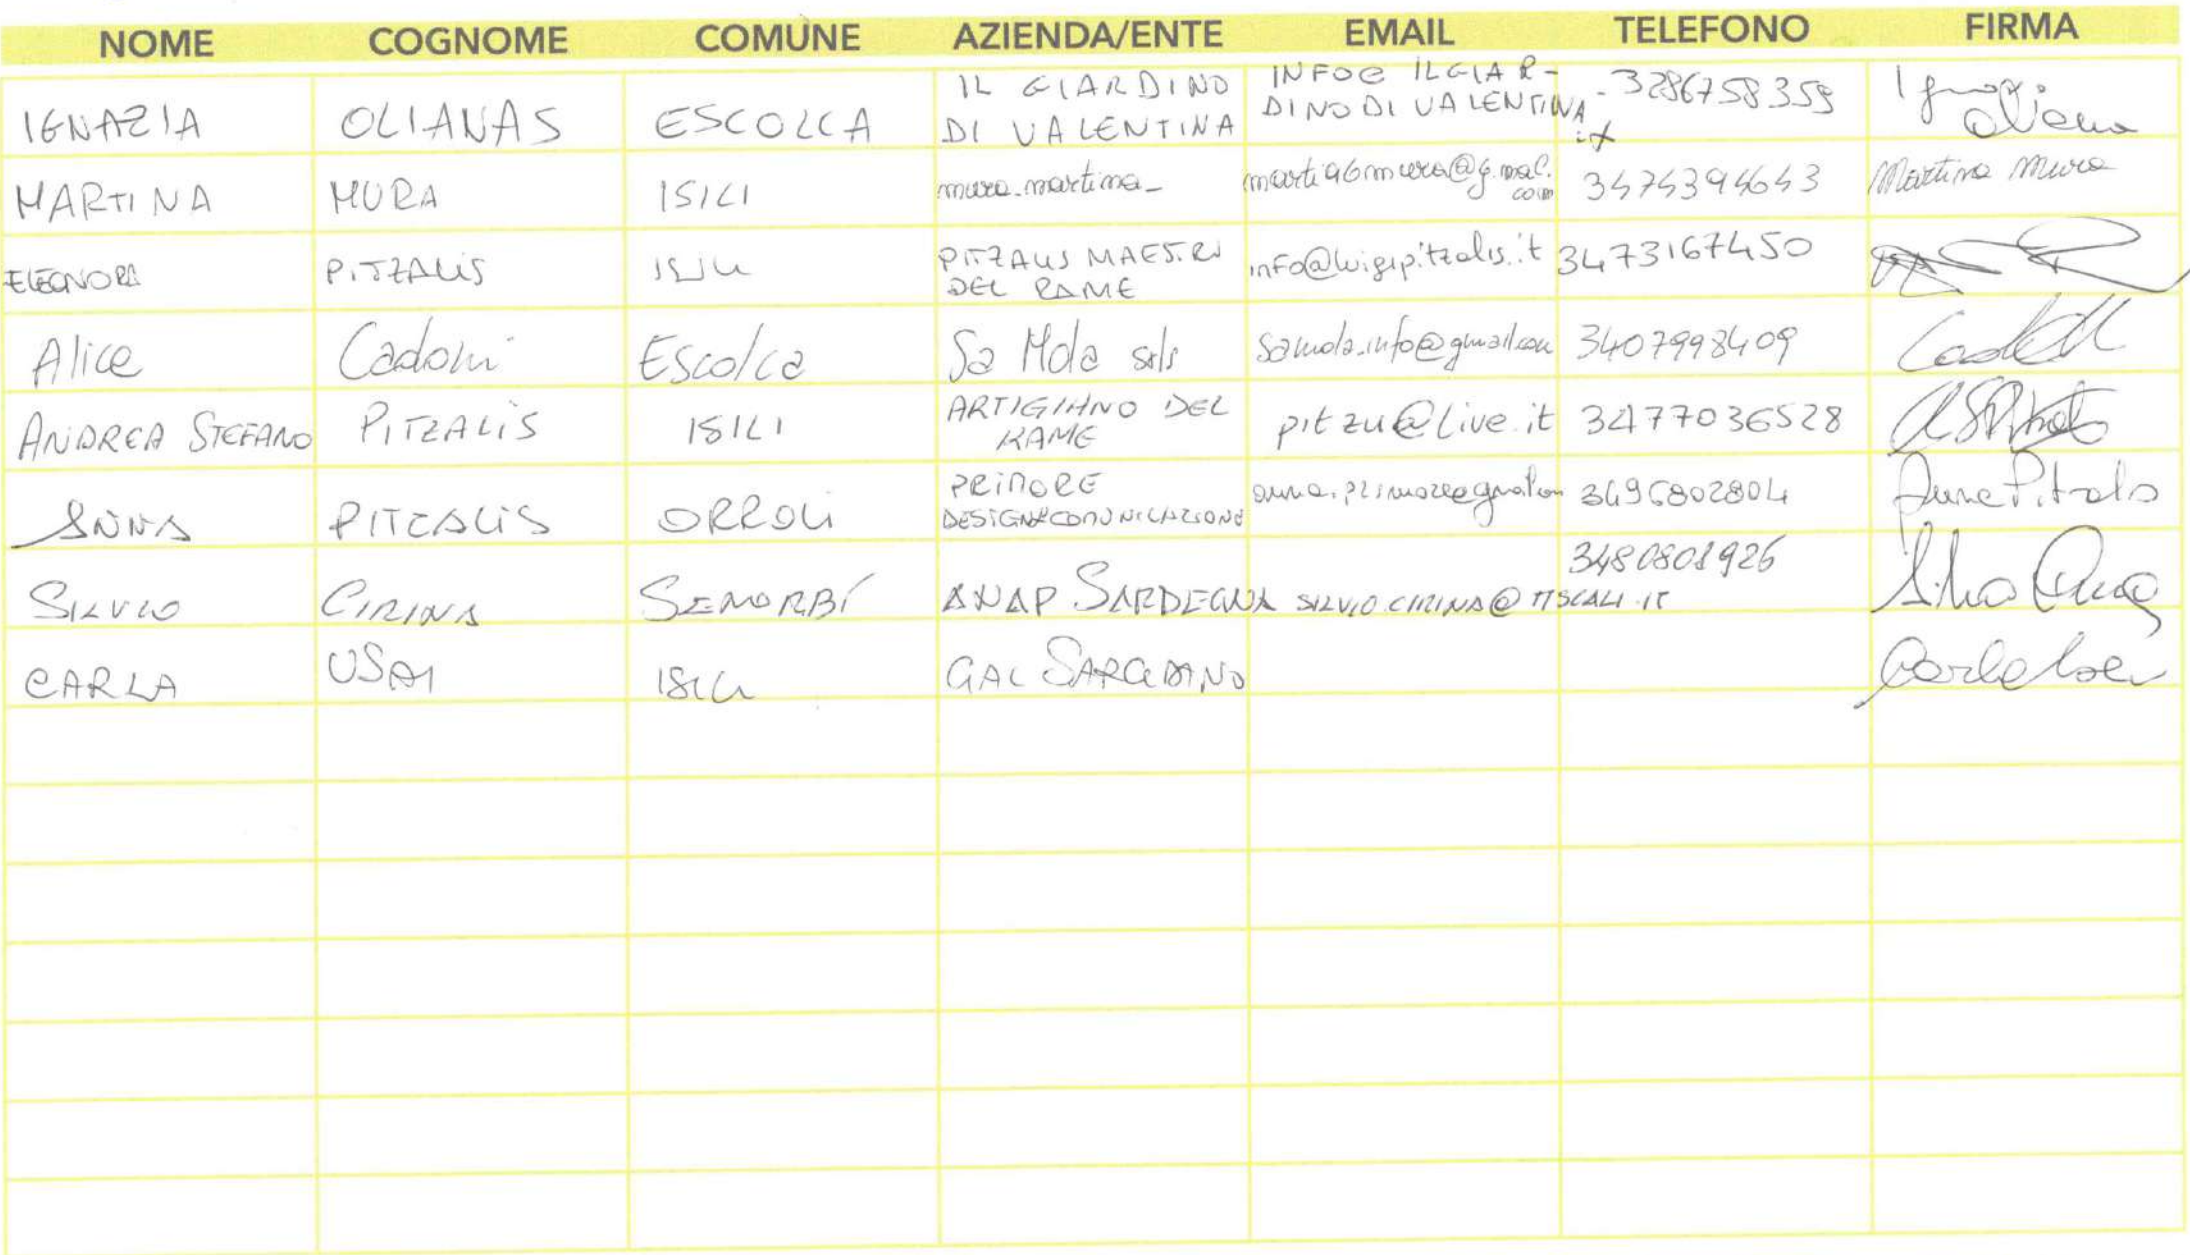 NOME COGNOME COMUNE AZIENDA/ENTE EMAIL TELEFONO FIRMA
IGNAZIA OLIANAS ESCOLCA IL GIARDINO DI VALENTINA INFO@ILGIARDINODIVALENTINA.it 3286758359 Ignazia Oliana
MARTINA MURA ISILI mura.martina_ marti96mura@gmail.com 3474394643 Martina Mura
ELEONORA PITZALIS ISILI PITZALIS MAESTRI DEL RAME info@luigipitzalis.it 3473167450
Alice Cadoni Escolca Sa Mola srls samola.info@gmail.com 3407998409
ANDREA STEFANO PITZALIS ISILI ARTIGIANO DEL RAME pitzu@live.it 3477036528
ANNA PITZALIS ORROLI PRIMORE DESIGN&COMUNICAZIONE anna.primore@gmail.com 3496802804 Anna Pitzalis
SILVIO CIRINA SENORBÍ ANAP SARDEGNA SILVIO.CIRINA@TISCALI.IT 3480801926 Silvio Cirina
CARLA USAI ISILI GAL SARCIDANO Carla Usai